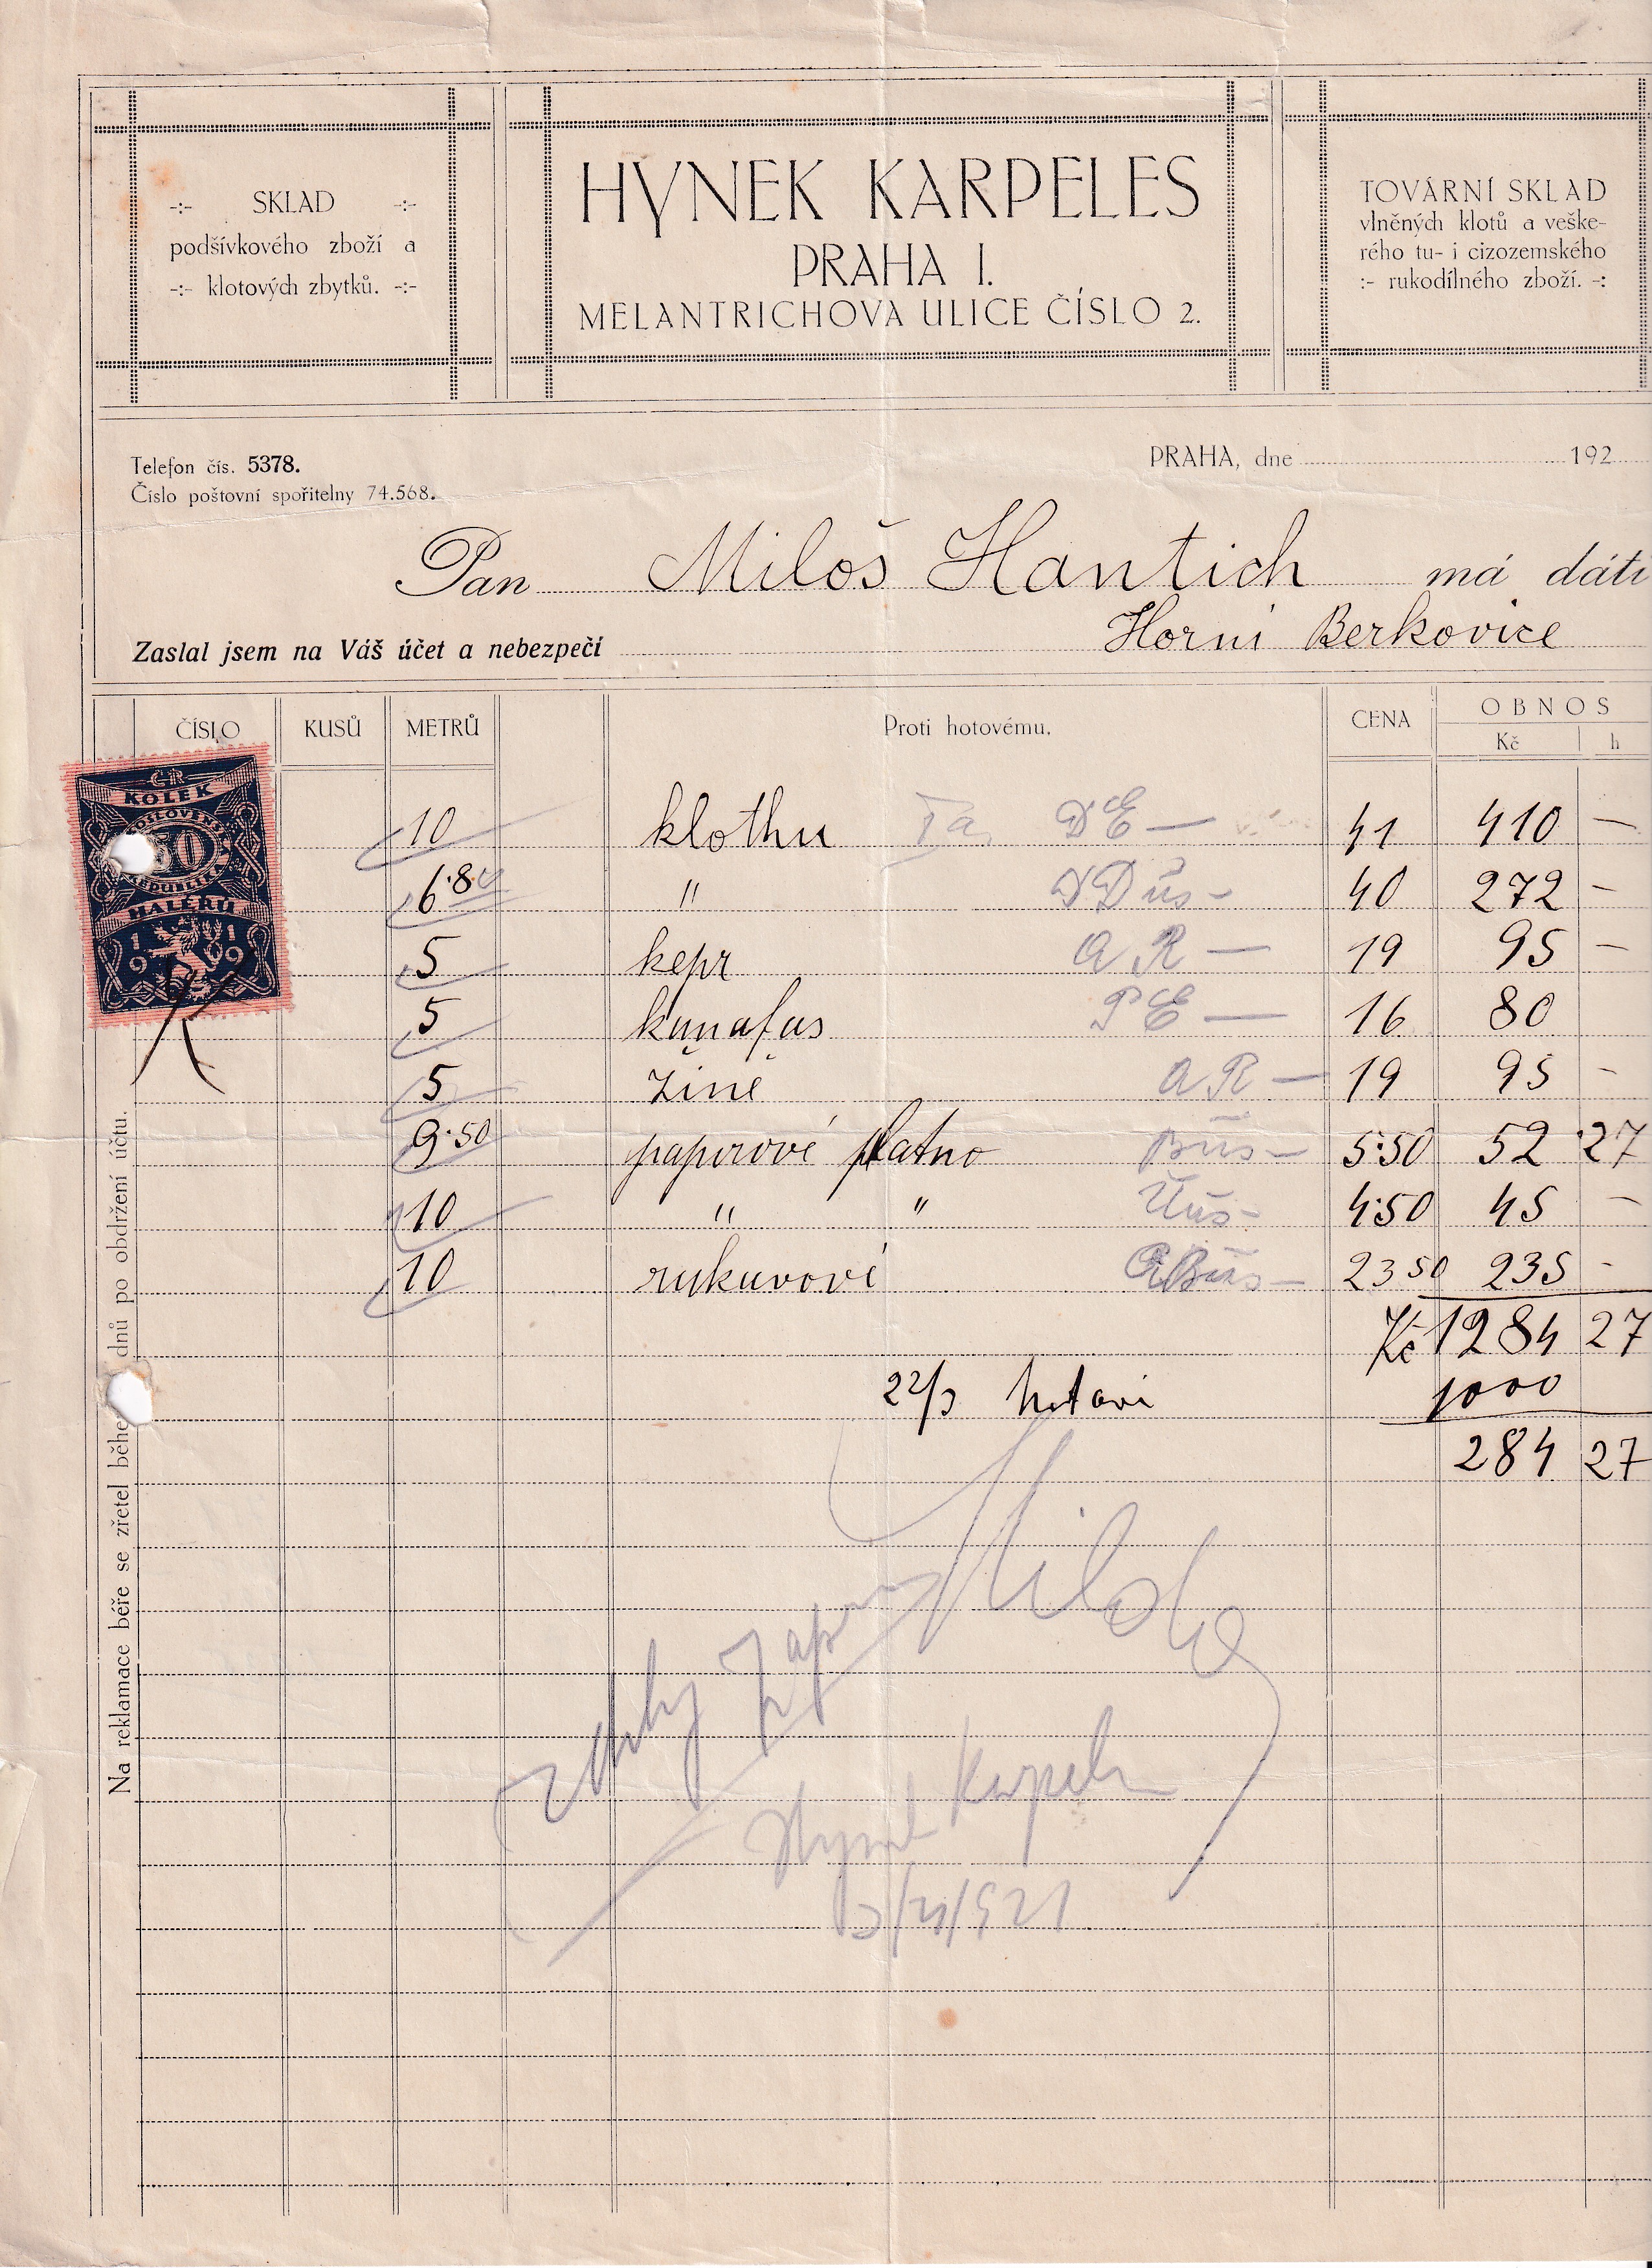 -:- SKLAD -:-
podšívkového zboží a
-:- klotových zbytků. -:-
HYNEK KARPELES
PRAHA I.
MELANTRICHOVA ULICE ČÍSLO 2.
TOVÁRNÍ SKLAD
vlněných klotů a veške-
rého tu- i cizozemského
:- rukodílného zboží. -:
Telefon čís. 5378.
Číslo poštovní spořitelny 74.568.
PRAHA, dne 192
Pan Miloš Hantich má dáti
Horni Berkovice
Zaslal jsem na Váš účet a nebezpečí
ČÍSLO KUSŮ METRŮ Proti hotovému. CENA OBNOS
Kč h
ČSR
KOLEK
50
REPUBLIKA
HALÉŘŮ
1919
10 klothu DE — 41 410 —
6·80 " 40 272 —
5 kepr AR — 19 95 —
5 kanafas PE — 16 80
5 žině AR — 19 95 -
9·50 papirové platno 5·50 52 27
10 " " 4·50 45 -
10 rukávové 23 50 235 -
Kč 1284 27
22/3 hotově 1000
284 27
Hynek Karpeles
Na reklamace béře se zřetel během dnů po obdržení účtu.